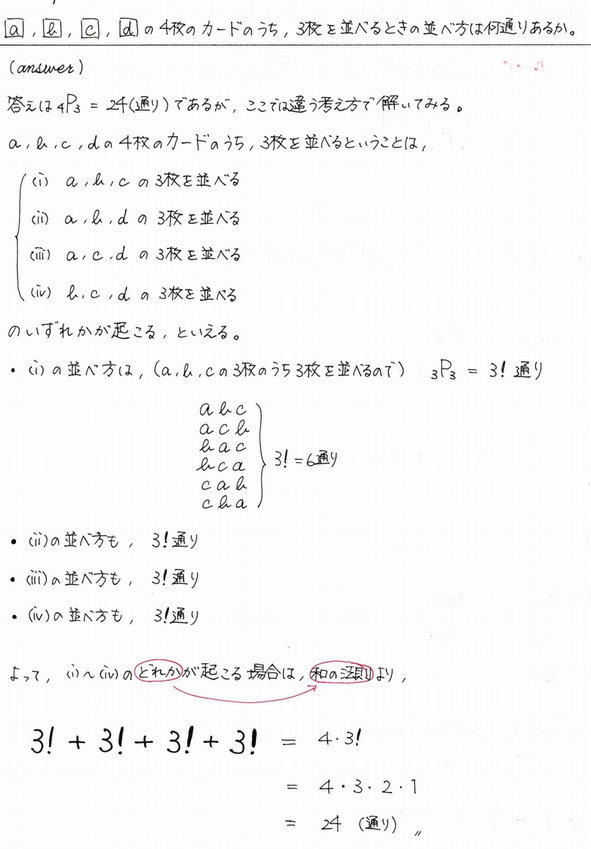 a, b, c, d の4枚のカードのうち, 3枚を並べるときの並べ方は何通りあるか。
(answer)
答えは ₄P₃ = 24(通り)であるが, ここでは違う考え方で解いてみる。
a, b, c, d の4枚のカードのうち, 3枚を並べるということは,
(i) a, b, c の3枚を並べる
(ii) a, b, d の3枚を並べる
(iii) a, c, d の3枚を並べる
(iv) b, c, d の3枚を並べる
のいずれかが起こる, といえる。
• (i)の並べ方は, (a, b, cの3枚のうち3枚を並べるので) ₃P₃ = 3! 通り
a b c
a c b
b a c
b c a
c a b
c b a
3! = 6通り
• (ii)の並べ方も, 3!通り
• (iii)の並べ方も, 3!通り
• (iv)の並べ方も, 3!通り
よって, (i)~(iv)のどれかが起こる場合は, 和の法則より,
3! + 3! + 3! + 3! = 4・3!
= 4・3・2・1
= 24 (通り)〃